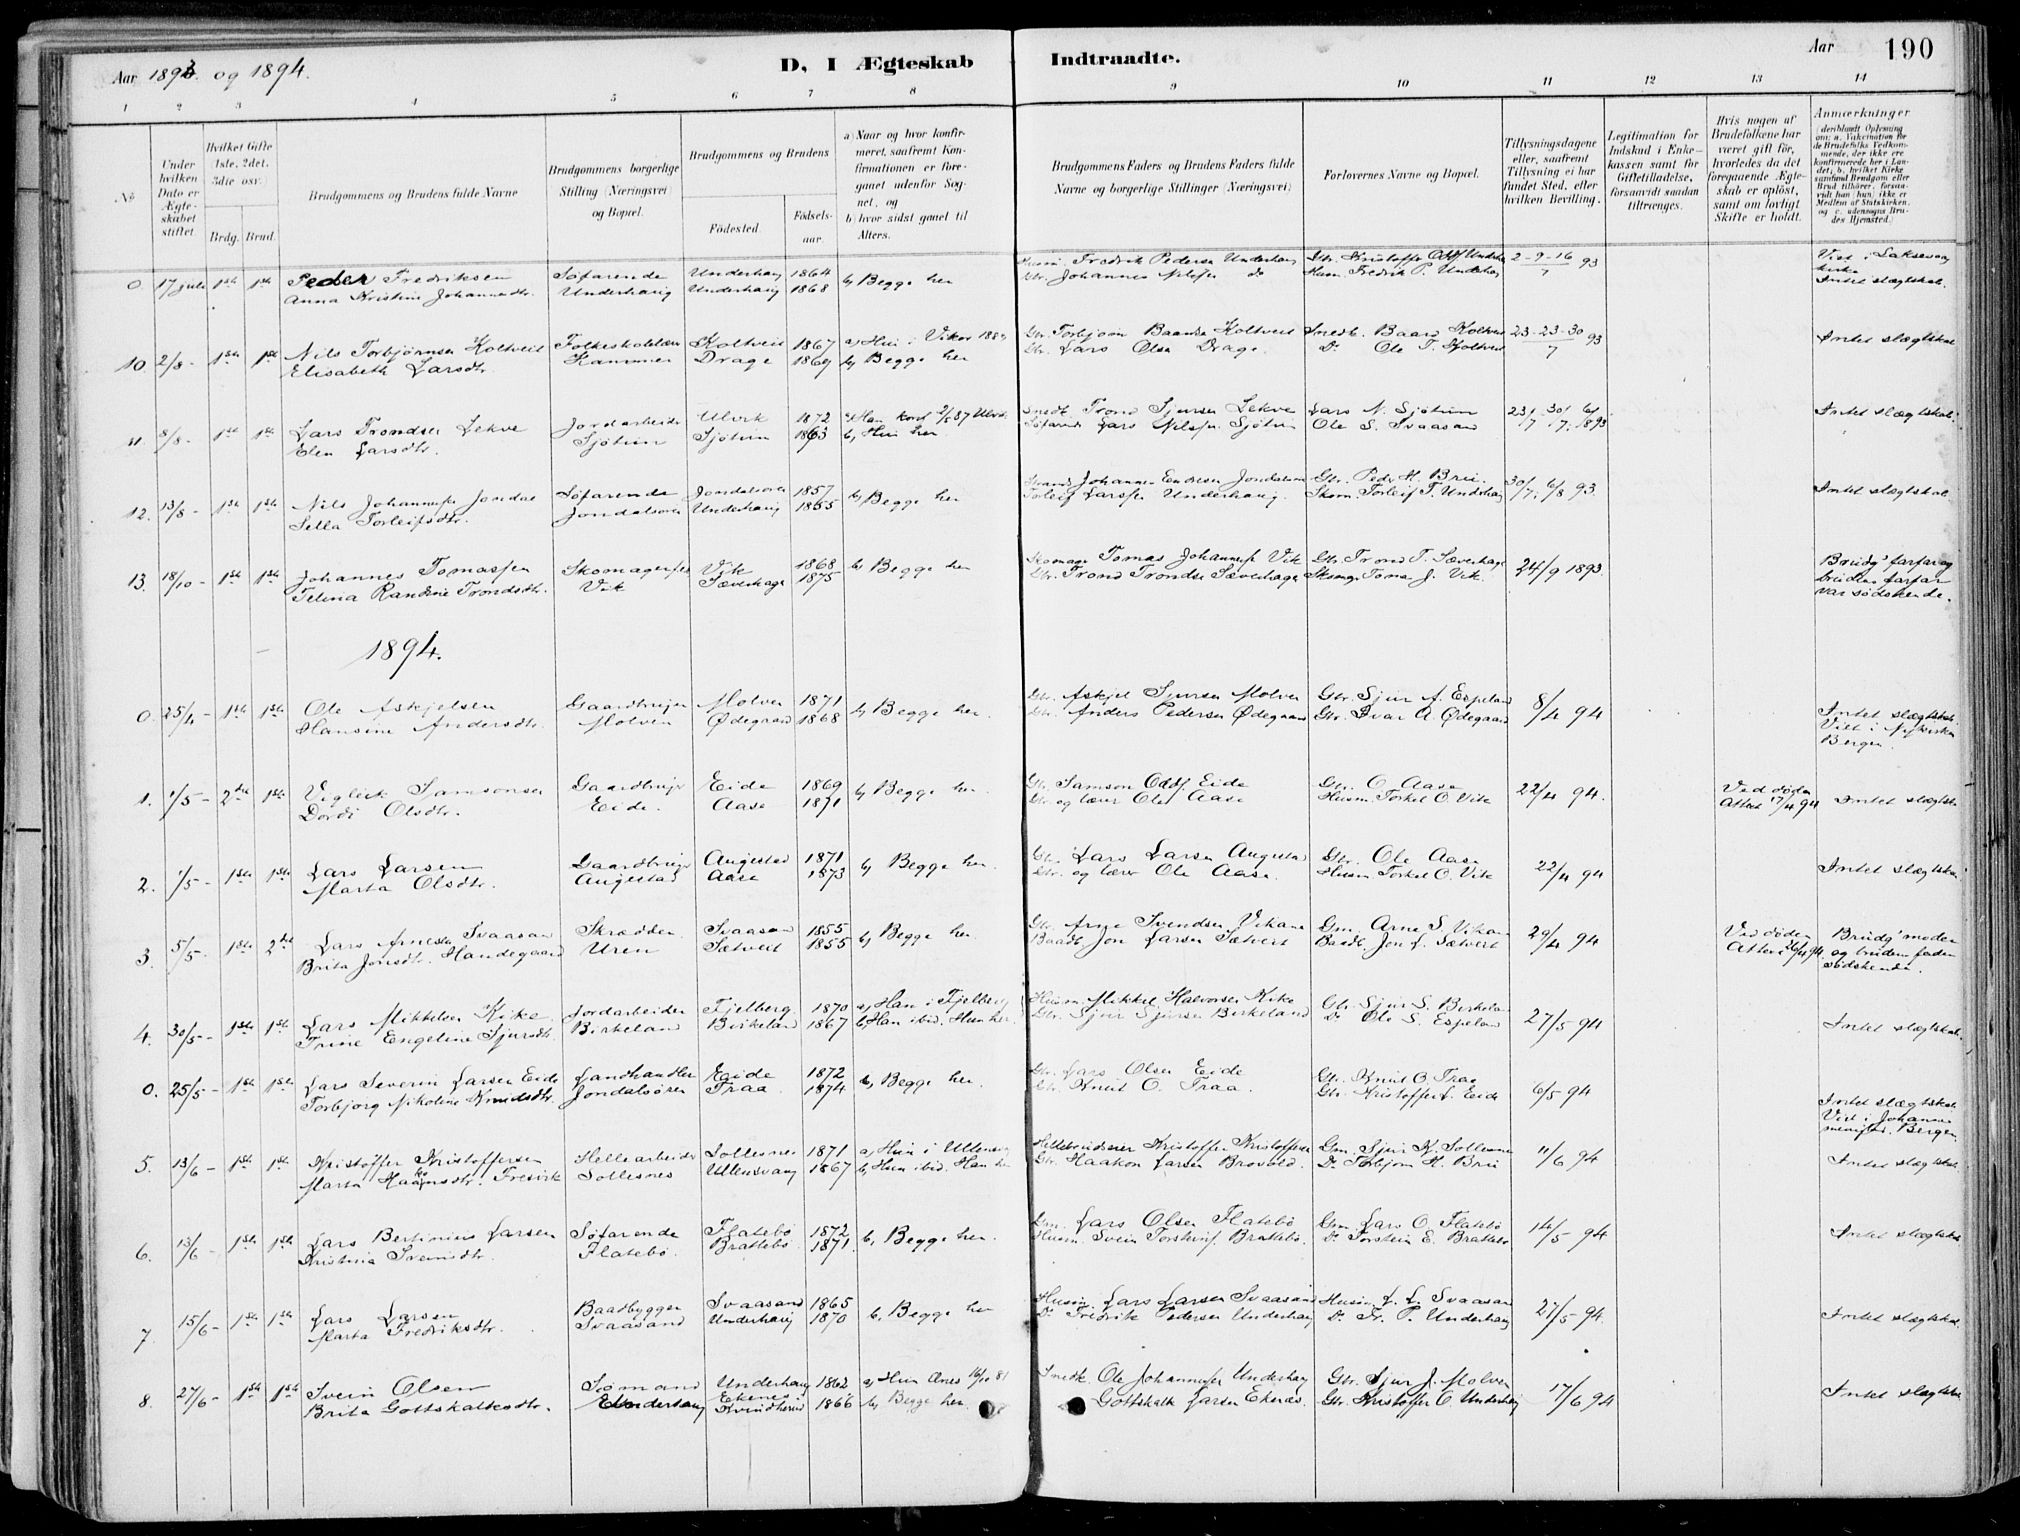 Aar 1893. og 1894.
D, I Ægteskab Indtraadte.
Aar 190
1 2 3 4 5 6 7 8 9 10 11 12 13 14
No
Under hvilken Dato er Ægteskabet stiftet.
Hvilket Gifte (1ste, 2det, 3die osv.)
Brdg. Brud.
Brudgommens og Brudens fulde Navne
Brudgommens borgerlige Stilling (Næringsvei) og Bopæl.
Brudgommens og Brudens
Fødested.
Fødselsaar.
a) Naar og hvor konfirmeret, saafremt Konfirmationen er foregaaet udenfor Sognet, og
b) hvor sidst gaaet til Alters.
Brudgommens Faders og Brudens Faders fulde Navne og borgerlige Stillinger (Næringsvei)
Forlovernes Navne og Bopæl.
Tillysningsdagene eller, saafremt Tillysning ei har fundet Sted, efter hvilken Bevilling.
Legitimation for Indskud i Enkekassen samt for Gifletilladelse, forsaavidt saadan tiltrænges.
Hvis nogen af Brudefolkene har været gift før, hvorledes da det foregaaende Ægteskab er opløst, samt om lovligt Skifte er holdt.
Anmærkninger
0. 17 juli 1ste 1ste Peder Fredriksen Søfarende Underhaug 1864 b, Begge her Husm. Fredrik Pedersen Underhaug 2-9-16 93
Anna Kristine Johannesdtr. Underhaug Underhaug 1868 Gbr. Johannes Nilssen do Husm. Fredrik P. Underhaug 7
Intet slægtskab.
10 2/8 - 1ste 1ste Nils Torbjørnsen Koltveit Koltveit 1867 a, Hun i Vikør Gbr. Torbjørn Koltveit Smedb. Baard Koltveit 23-23-30 93 Intet slægtskab
Elisabeth Larsdtr. Drage 1869 b, Begge her Gbr. Lars Olsen Drage. Do Ole T. Koltveit 7
11 8/8 - 1ste 1ste Lars Trondsen Lekve Jordarbeider Ulvik 1872 Trond Sjursen Lekve Lars N. Sjøtun 23/7 30/7 6/8 93 Intet slægtskab.
Elen Larsdtr. Sjøtun Sjøtun 1863 b, Hun her. Lars Nilssen Sjøtun Ole S. Svaasand
12. 13/8 - 1ste 1ste Nils Johannessen Jondal Søfarende Jondalsøren 1857 b, Begge her Johannes Endresen Jondalsøren Gbr. Peder H. Brii. 30/7, 6/8 93. Intet slægtskab.
Sella Torleifsdtr. Jondalsøren Underhaug 1855 Torleif Larssen Underhaug. Skom. Torleif T. Underhaug
13. 18/10 - 1ste 1ste Johannes Tomassen Skomagersvend Vik 1868 b, Begge her Skomager Tomas Johannessen Vik Gbr. Trond T. Sæverhage 24/9 1893. Brudg' farfar og
Telina Randine Trondsdtr. Vik Sæverhage 1875 Gbr. Trond Trondsen Sæverhage Skomager Tomas J. Vik. brudens farfar
var sødskende.
1894.
0. 25/4 - 1ste 1ste Ole Askjelsen Gaardbruger Molven 1871 b, Begge her. Gbr. Askjel Sjursen Molven Gbr. Sjur A. Espeland 8/4 94
Hansine Andersdtr. Molven Ødegaard 1868 Gbr. Anders Pedersen Ødegaard Gbr. Ivar A. Ødegaard Intet slægtskab.
Viet i Nykirken
Bergen.
1. 1/5 - 2det 1ste Vigleik Samsonsen Gaardbruger Eide 1869 b, Begge her. Gbr. Samson Odds. Eide Gbr. O. Aase 22/4 94. Ved døden
Dordi Olsdtr. Eide. Aase 1871 Gbr. og lærer Ole Aase Husm. Torkel O. Vik Attest 17/4 94 Intet slægtsk.
2. 1/5 - 1ste 1ste Lars Larsen Gaardbruger Augestad 1871 b, Begge her Gbr. Lars Larsen Augestad Gbr. Ole Aase 22/4 94 Intet slægtskab
Marta Olsdtr. Augestad Aase 1873 Gbr. og lærer Ole Aase. Husm. Torkel O. Vik
3. 5/5 - 1ste 2det Lars Arnesen Svaasand Skrædder Svaasand 1855 b, Begge her Gbr. Arne Svendsen Vikane Gm. Arne S. Vikane 29/4 94 Ved døden Brudg' moder
Brita Jonsdtr. Handegaard Uren Sætveit 1855 Baadb. Jon Larsen Sætveit Baadb. Jon L. Sætveit Attest 26/4 94 og brudens fader
sødskende.
4. 30/5 - 1ste 1ste Lars Mikkelsen Kike Jordarbeider Fjelberg 1870 a, Han i Fjelberg Husm. Mikkel Halvorsen Kike Gbr. Sjur S. Birkeland 27/5 94 Intet slægtskab.
Trine Engeline Sjursdtr. Birkeland Birkeland 1867 b, Han ibid. Hun her Gbr. Sjur Sjursen Birkeland Do Ole S. Espeland
0. 25/5 - 1ste 1ste Lars Severin Larsen Eide Landhandler Eide 1872 b, Begge her. Gbr. Lars Olsen Eide Gbr. Knut O. Traa 6/5 94
Torbjørg Nikoline Knudsdtr. Jondalsøren Traa. 1874 Gbr. Knut O. Traa. Gbr. Kristoffer L. Eide Intet slægtskab.
Viet i Johannes
menighed. Bergen.
5. 13/6 - 1ste 1ste Kristoffer Kristoffersen Hellearbeider Sollesnes 1871 a, Hun i Ullensvang Kristoffer Kristoffersen Gm. Sjur K. Sollesnes 11/6 94 Intet slægtskab.
Marta Haakonsdtr. Fresvik Sollesnes Ullensvang 1867 b, Hun ibid. Han her Gbr. Haakon Larsen Brovold. Do Torbjørn H. Brii
6. 13/6 - 1ste 1ste Lars Bertinius Larsen Søfarende Flatebø 1872 b, Begge her. Gm. Lars Olsen Flatebø Gm. Lars O. Flatebø 14/5 94 Intet slægtskab
Kristina Sveinsdtr. Flatebø. Brattebø 1871. Husm. Svein Torsteins. Brattebø. Do Torstein E. Brattebø
7. 15/6 - 1ste 1ste Lars Larsen Baadbygger Svaasand 1865 b, Begge her Husm. Lars Larsen Svaasand Husm. L. L. Svaasand 27/5 94. Intet slægtskab.
Marta Fredriksdtr. Svaasand Underhaug 1870 Do Fredrik Pedersen Underhaug Do Fr. P. Underhaug
8. 27/6 - 1ste 1ste Svein Olsen Sømand Underhaug 1862 a, Hun Ænes 16/10 81 Smedb. Ole Johannessen Underhaug Gbr. Sjur J. Molven 17/6 94 Intet slægtskab
Brita Gottskalksdtr. Underhaug Ekenes Kvindherred 1866 b, Begge her. Gottskalk Larsen Ekenes. Gbr. Kristoffer O. Underhaug